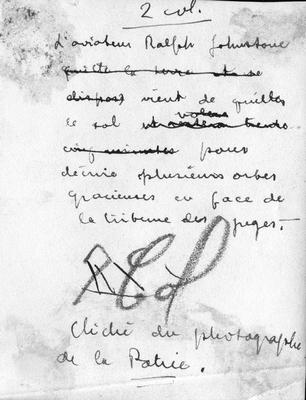 2 col.
L'aviateur Ralph Johnstone
quitte la terre et se
dispose vient de quitter
le sol et restera trente volera
cinq minutes pour
décrire plusieurs orbes
gracieuses en face de
la tribune des juges.
Cliché du photographe
de la Patrie.